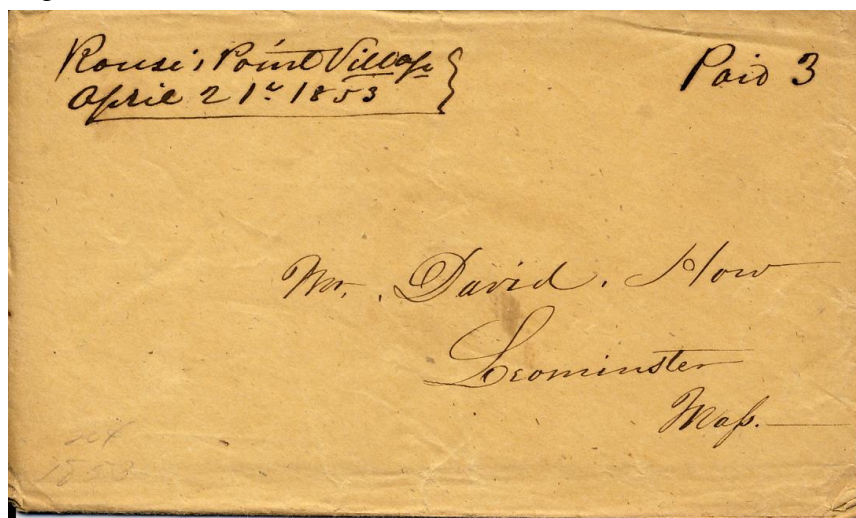 Rouse's Point Village
April 21st 1853
Paid 3
Mr. David. How
Leominster
Mass.
1853